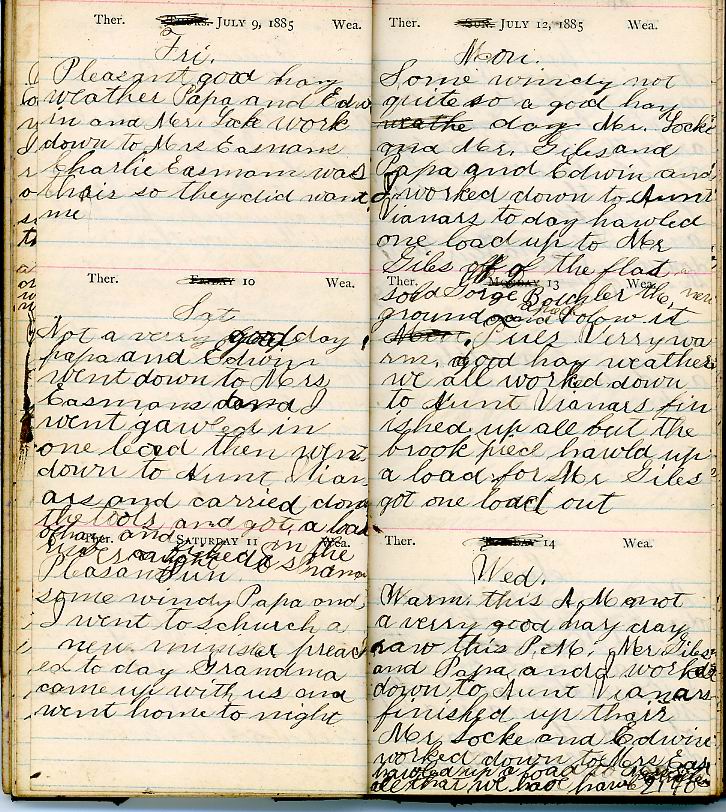 Ther. Thurs. July 9, 1885 Wea.
Fri.
Pleasant good hay
weather Papa and Edw
in and Mr. Lock work
down to Mrs Easmans
Charlie Easmam was
thair so they did want
me
Ther. Friday 10 Wea.
Sat
Not a verry good day
papa and Edwin
went down to Mrs
Easmans and I
went gawled in
one load then went
down to Aunt Vian
ars and carried down
the tools, and got a load
of hay and in the
river
Ther. Saturday 11 Wea.
Pleasant Sun.
some windy Papa and
I went to schurch a
new minister preach
ed to day Grandma
came up with us and
went home to night
Ther. Sun. July 12, 1885 Wea.
Mon.
Some windy not
quite so a good hay
weathe day Mr. Locke
and Mr. Giles and
Papa and Edwin and
I worked down to Aunt
Vianars to day hawled
one load up to Mr
Giles off of the flat
Ther. Monday 13 Wea.
sold Gorge the
ground and below it
Mon. Tues Verry wa
rm, good hay weather
we all worked down
to Aunt Vianars fin
ished up all but the
brook piece hawld up
a load for Mr Giles
got one load out
Ther. Tuesday 14 Wea.
Wed.
Warm this A.M. not
a verry good hay day
raw this P.M. Mr Giles
and Papa and I worked
down to Aunt Vianars
finished up thair
Mr Locke and Edwin
worked down to Mrs Eas
hawled up a load to
all that we had have